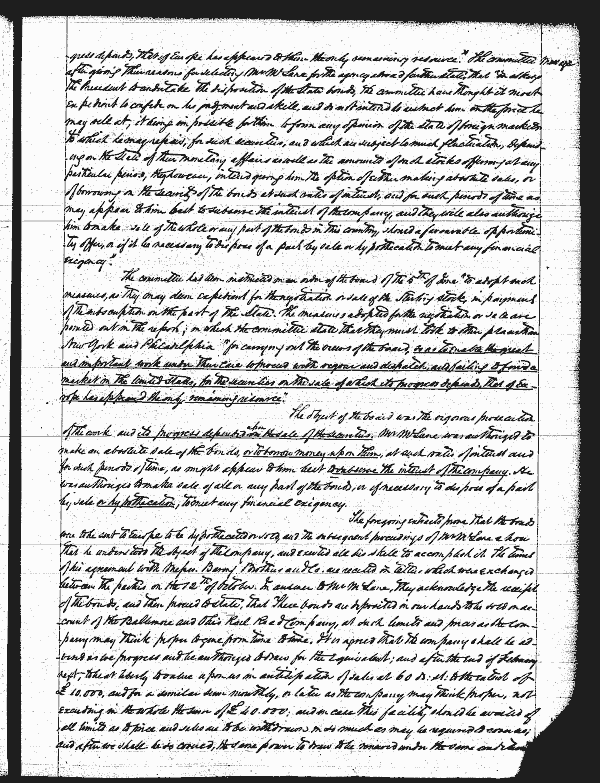 gress depends, that of Europe has appeared to them the only remaining resource." The committee
after giving their reasons for selecting Mr McLane for the agency abroad further state, that "in asking
the President to undertake the disposition of the State bonds, the committee have thought it most
expedient to confide on his judgment and skill, and do not intend to instruct him on the price he
may sell at, it being impossible for them to form any opinion of the state of foreign markets
to which he may repair, for such securities, and which are subject to much fluctuation, depend-
ing on the State of their monetary affairs as well as the amounts of such stocks offering at any
particular period, they however, intend giving him the option of either making absolute sales, or
of borrowing on the security of the bonds at such rates of interest, and for such periods of time as
may appear to him best to subserve the interest of the company, and they will also authorize
him to make sale of the whole or any part of the bonds in this country, should a favourable opportuni-
ty offer, or if it be necessary to dispose of a part by sale or hypothecation to meet any financial
exigency."
The committee had been instructed in an order of the board of the 5th of June "to adopt such
measures, as they may deem expedient for the negotiation or sale of the Sterling stock, in payment
of the subscription on the part of the State. The measures adopted for the negotiation or sale are
pointed out in the report; in which the committee state that they must look to other places than
New York and Philadelphia "for carrying out the views of the board, so as to enable the great
and important work under their care to proceed with vigour and dispatch, and failing to find a
market in the United States, for the securities on the sale of which its progress depends, that of Eu-
rope has appeared the only remaining resource."
The object of the board was the vigorous prosecution
of the work and its progress depended upon the sale of the securities. Mr McLane was authorized to
make an absolute sale of the bonds, or to borrow money upon them, at such rates of interest and
for such periods of time, as might appear to him best to subserve the interest of the company. He
was authorized to make sale of all or any part of the bonds, or if necessary to dispose of a part
by sale or hypothecation, to meet any financial exigency.
The foregoing extracts prove that the bonds
were to be sent to Europe to be hypothecated or sold, and the subsequent proceedings of Mr McLane show
that he understood the object of the Company, and exerted all his skill to accomplish it. The terms
of his agreement with Messrs. Baring Brothers and Co. are recited in letters which were exchanged
between the parties on the 12th of October. In answer to Mr McLane, they acknowledge the receipt
of the bonds, and then proceed to state, that "These bonds are deposited in our hands to be sold on ac-
count of the Baltimore and Ohio Rail Road Company, at such limits and prices as the com-
pany may think proper to give from time to time. It is agreed that the company shall be ad-
vised as we progress and be authorized to draw for the equivalent; and after the end of February
next, to be at liberty to value upon us in anticipation of sales at 60 ds: st: to the extent of
£10.000, and for a similar sum monthly, or later as the company may think proper, not
exceeding in the whole the sum of £40.000; and in case this facility should be availed of
all limits as to price and sales are to be withdrawn in so much as may be required to cover us;
and after we shall be so covered, the same power to draw to be renewed under the same conditions